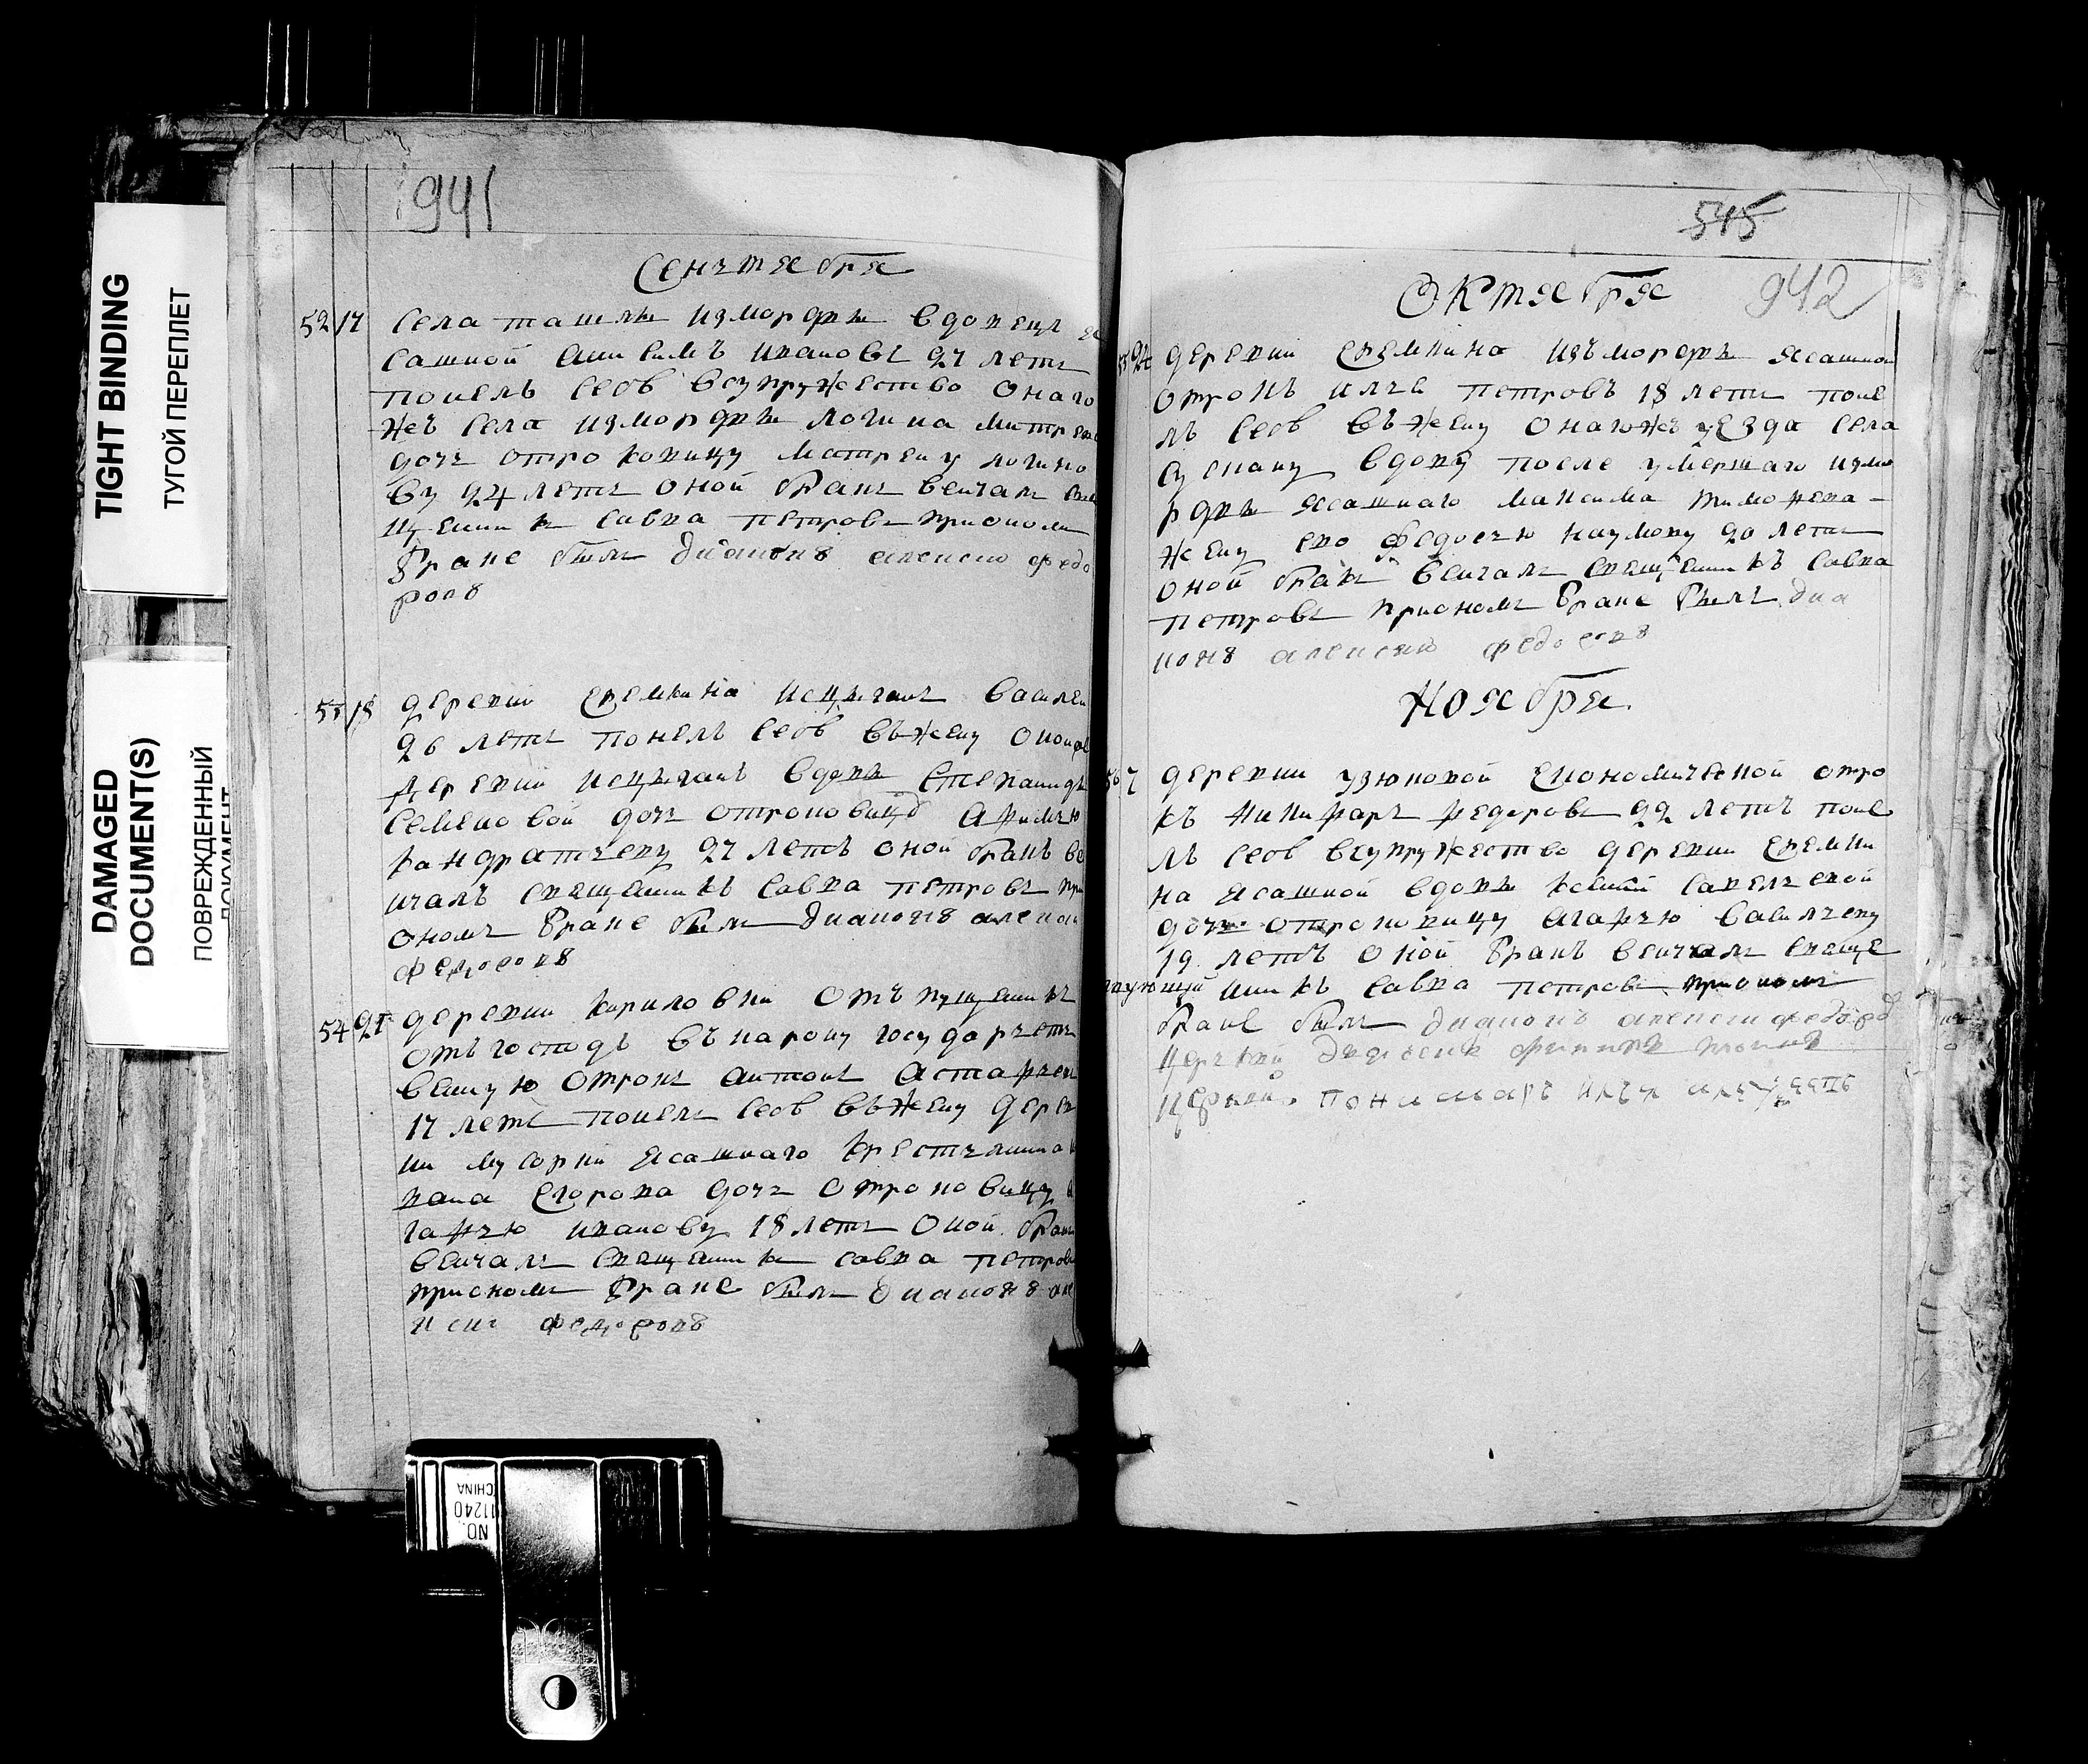 TIGHT BINDING
ТУГОЙ ПЕРЕПЛЕТ
DAMAGED
DOCUMENT(S)
ПОВРЕЖДЕННЫЙ
ДОКУМЕНТ
941
Сентября
52 17 Села ташлы измордвы вдовецъ я
сашной иванов 27 летъ
понелъ себѣ всупружество онаго
жеъ села измордвы логина митр
дочь отроковицу матрену логино
ву 24 летъ оной бракъ венчалъ свя
щенникъ савва петровъ приономъ
браке былъ диаконъ алексеи федо
ровъ
53 18 деревни еремкина исцыганъ васил
26 летъ понелъ себѣ вьжену оной
деревни исцыганъ вдовы степаниды
семеновой дочь отроковицѣ
кандратьеву 27 летъ оной бракъ ве
нчалъ священникъ савва петровъ при
ономъ браке былъ диаконъ алекси
федоровъ
54 21 деревни кириловки отъпущенникъ
отъ господъ въ какову государст
венную отрокъ антонъ астафьев
17 летъ понелъ себѣ вьжену дерев
ни мусорки ясашнаго крестьянина и
вана егорова дочь отроковицу а
гафью иванову 18 летъ оной бракъ
венчалъ священникъ савва петровъ
приономъ браке былъ диаконъ але
кси федоровъ
545
Октября 942
24 деревни еремкина изъмордвы ясашной
отрокъ илья петровъ 18 летъ поне
лъ себѣ въжену онагожъ уезда села
вдову после умершаго измо
рдвы ясашнаго максима тимофеева
жену ево федосью наумову 20 летъ
оной бракъ венчалъ священникъ савва
петровъ приономъ браке былъ диа
конъ алексеи федоровъ
Ноября
56 7 деревни узюковой економической отро
къ никифаръ федоровъ 22 летъ поне
лъ себѣ всупружество деревни еремки
на ясашной вдовы ксении савельевой
дочь отроковицу агафью васильеву
19 летъ оной бракъ венчалъ свяще
нникъ савва петровъ приономъ
браке былъ диаконъ алексеи федоров
пономарь
NO.
11240
CHINA